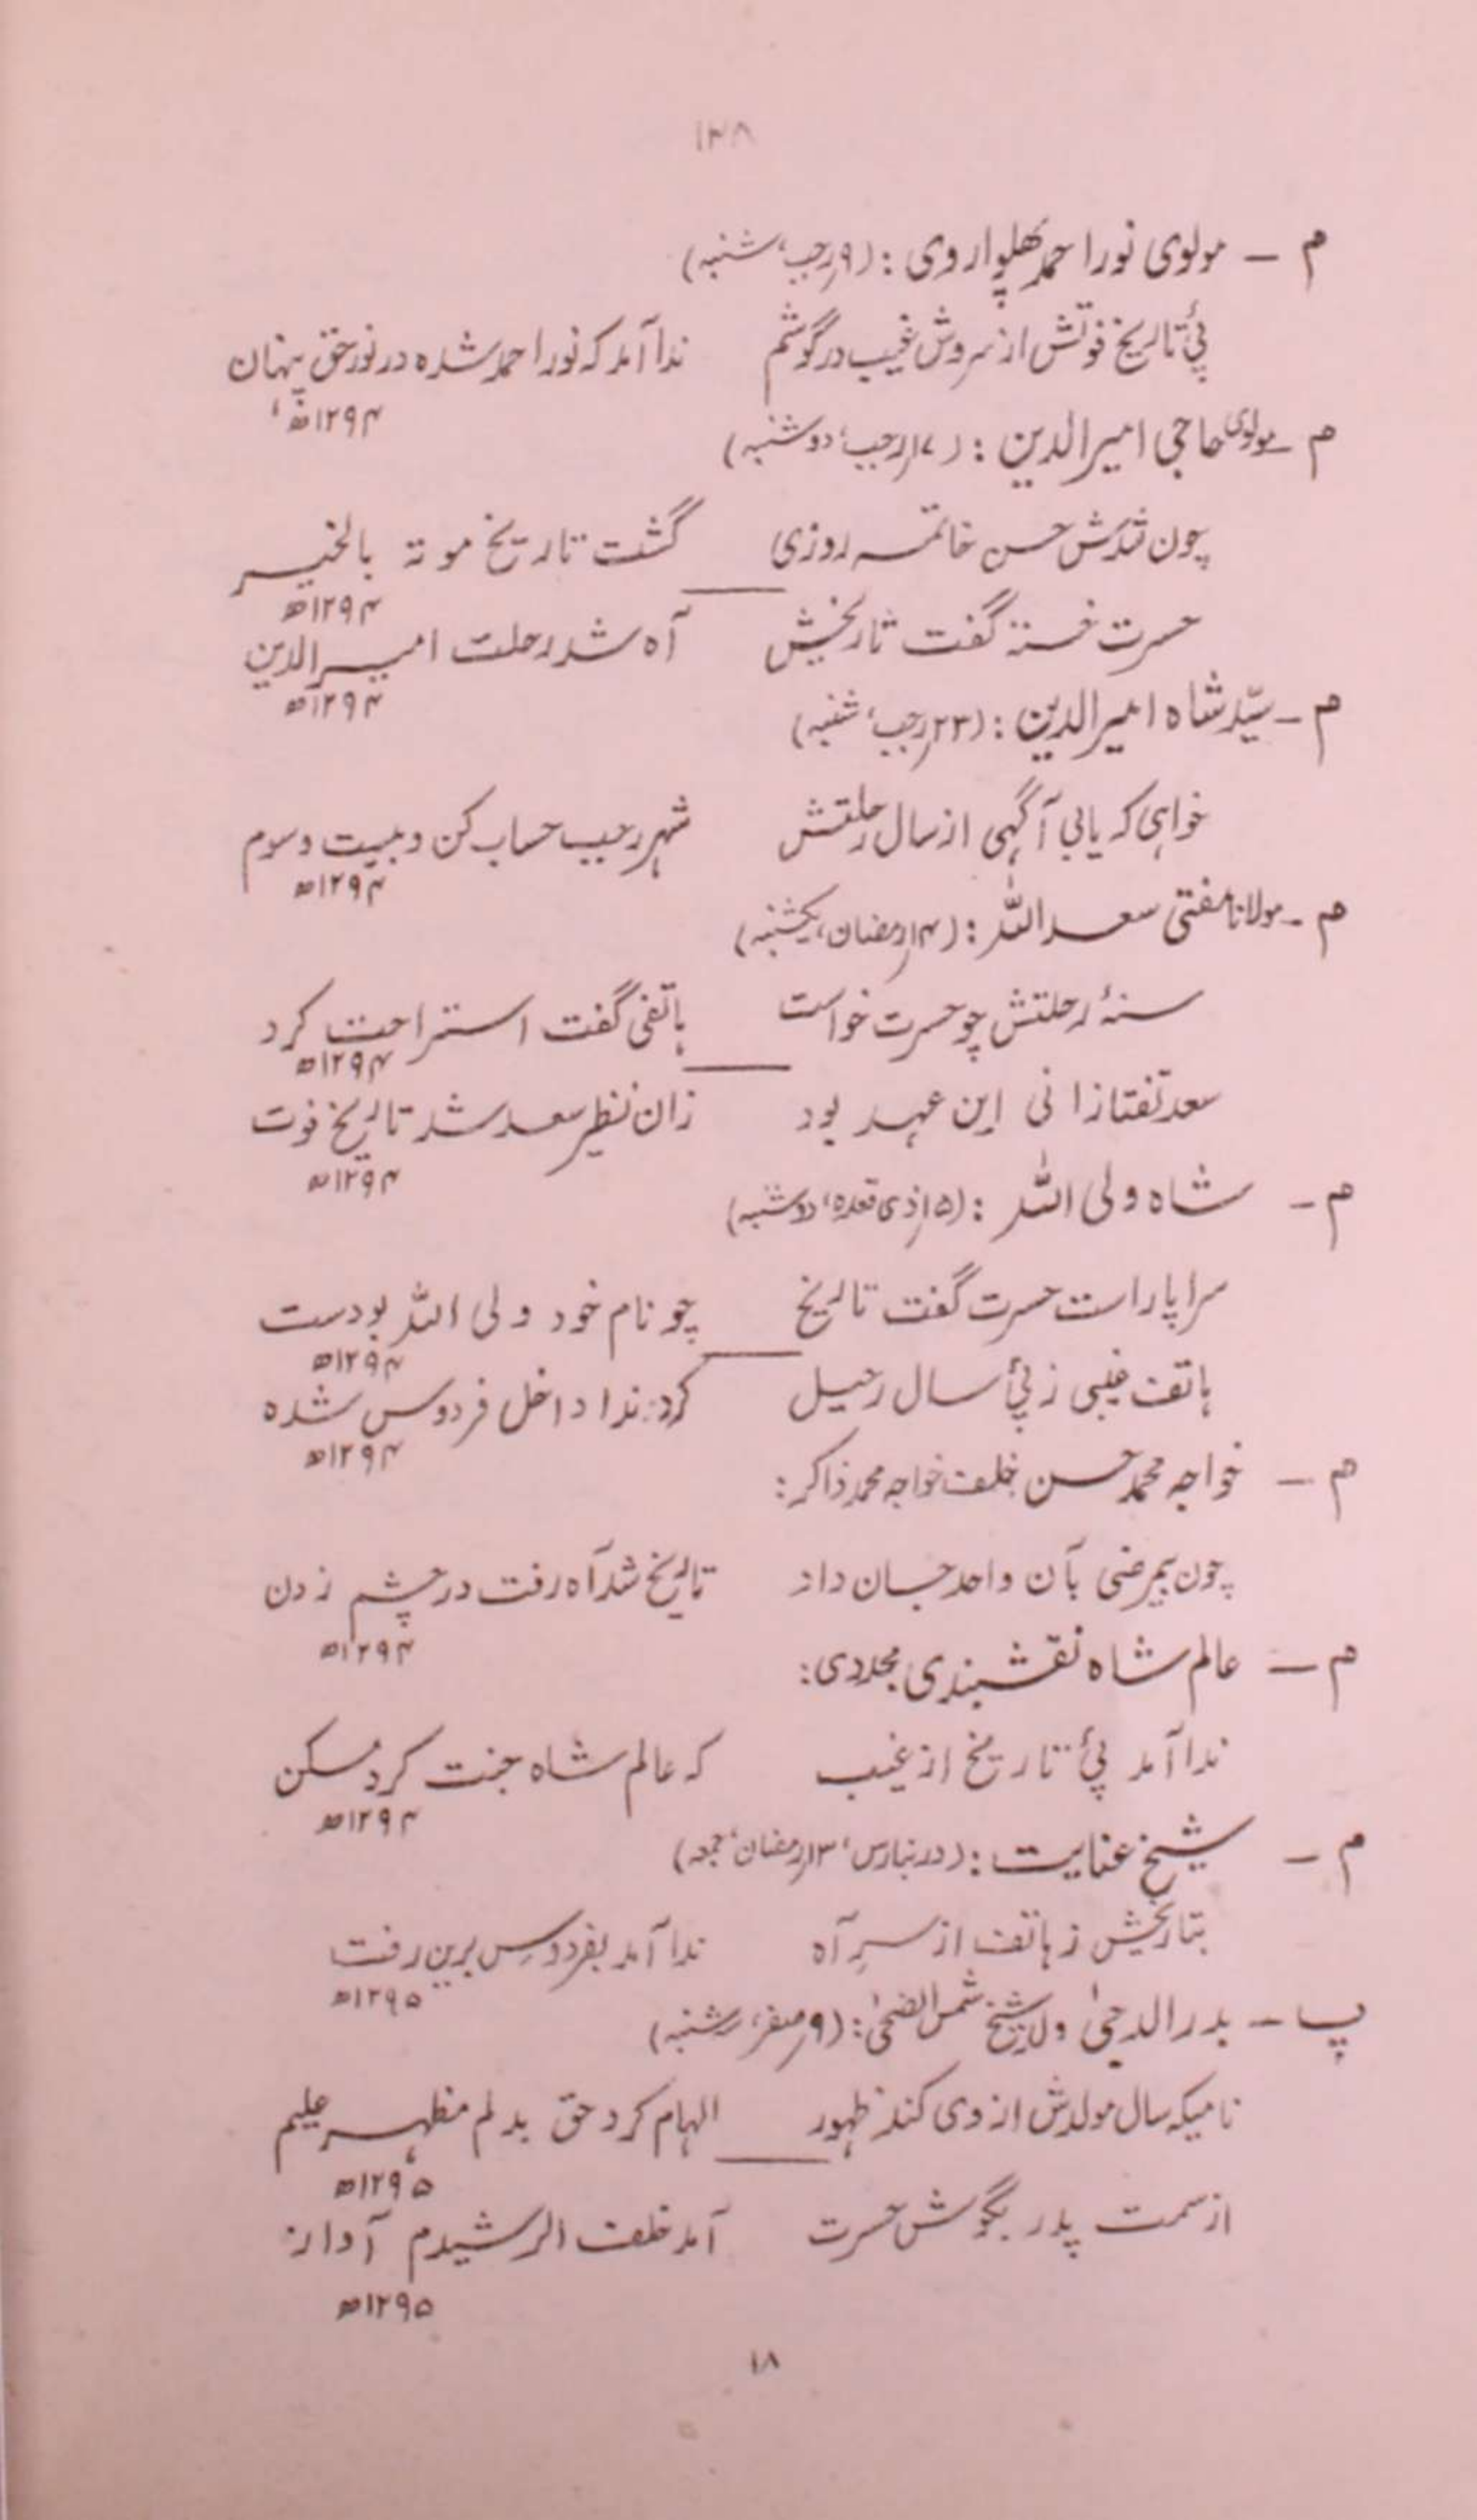 ۱۳۸
م ـ مولوی نور احمد پھلواروی : (۹ رجب، شنبہ)
پئ تاریخ فوتش از سروش غیب در گوشم ندا آمد کہ نور احمد شدہ در نور حق پنہان
۱۲۹۴ھ
م ـ مولوی حاجی امیر الدین : (۱۷ رجب، دوشنبہ)
چون شدش حسن خاتمہ روزی گشت تاریخ موتہ بالخیر
۱۲۹۴ھ
حسرت خستہ گفت تاریخش آہ شد رحلت امیر الدین
۱۲۹۴ھ
م ـ سیّد شاہ امیر الدین : (۲۳ رجب، شنبہ)
خواہی کہ یابی آگہی از سال رحلتش شہر رجب حساب کن و بیست و سوم
۱۲۹۴ھ
م ـ مولانا مفتی سعد اللہ : (۱۴ رمضان، یکشنبہ)
سنۂ رحلتش چو حسرت خواست ہاتفی گفت استراحت کرد
۱۲۹۴ھ
سعد تفتازانی این عہد بود زان نظیر سعد شد تاریخ فوت
۱۲۹۴ھ
م ـ شاہ ولی اللہ : (۱۵ ذی قعدہ، دوشنبہ)
سراپا راست حسرت گفت تاریخ چو نام خود ولی اللہ بودست
۱۲۹۴ھ
ہاتف غیبی ز پئ سال رحیل کرد ندا داخل فردوس شدہ
۱۲۹۴ھ
م ـ خواجہ محمد حسن خلف خواجہ محمد ذاکر :
چون بیمرضی بآن واحد جان داد تاریخ شد آہ رفت در چشم زدن
۱۲۹۴ھ
م ـ عالم شاہ نقشبندی مجددی :
ندا آمد پئ تاریخ از غیب کہ عالم شاہ جنت کرد مسکن
۱۲۹۴ھ
م ـ شیخ عنایت : (در بنارس، ۱۳ رمضان، جمعہ)
بتاریخش ز ہاتف از سرِ آہ ندا آمد بفردوس برین رفت
۱۲۹۵ھ
پ ـ بدر الدجیٰ ولد شیخ شمس الضحیٰ : (۹ صفر، شنبہ)
نامیکہ سال مولدش از وی کند ظہور الہام کرد حق بدلم مظہر علیم
۱۲۹۵ھ
از سمت پدر بگوش حسرت آمد خلف الرشیدم آواز
۱۲۹۵ھ
۱۸